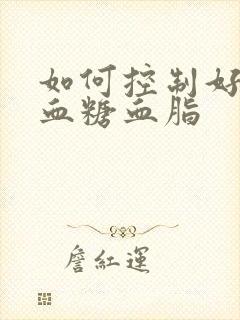 如何控制好
血糖血脂
詹红運